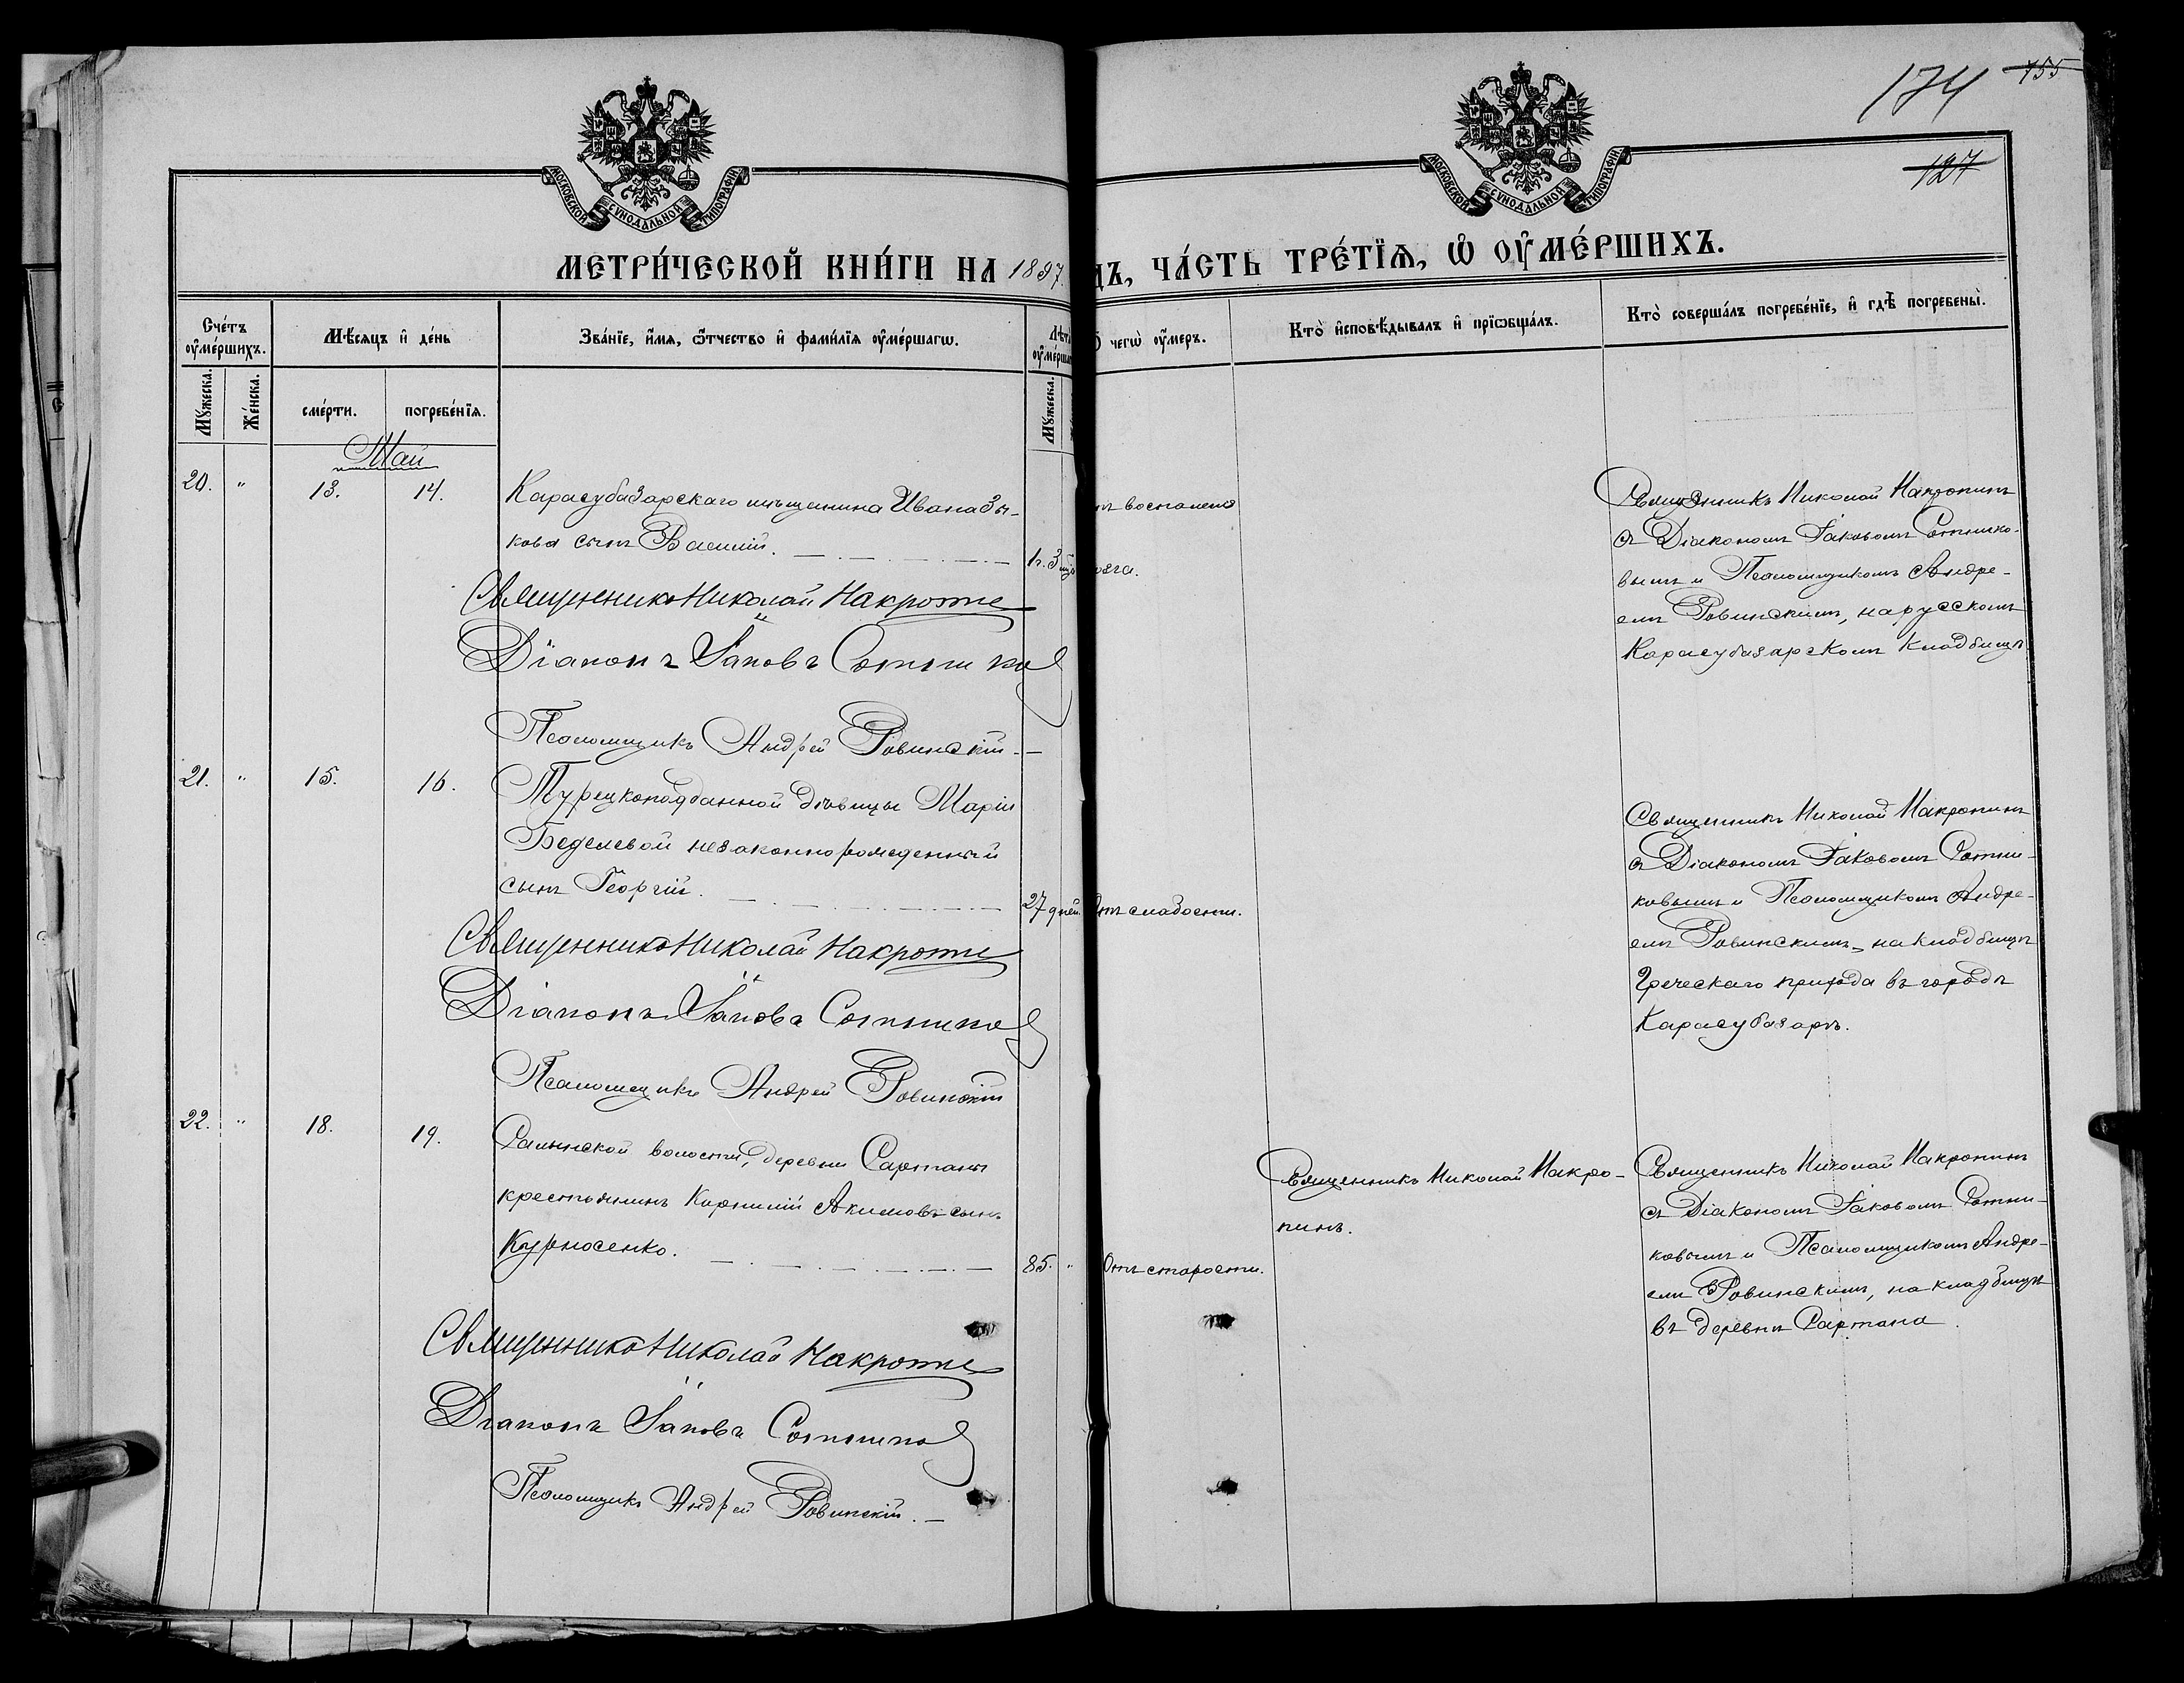 174 155
127
МОСКОВСКОЙ СѴНОДАЛЬНОЙ ТИПОГРАФІИ
МОСКОВСКОЙ СѴНОДАЛЬНОЙ ТИПОГРАФІИ
МЕТРИ́ЧЕСКОЙ КНИ́ГИ НА 1897
ДЪ, ЧА́СТЬ ТРЕ́ТІѦ, Ѡ ОУ҆МЕ́РШИХЪ.
Сче́тъ оу҆ме́ршихъ.
Мꙋ́жеска.
Же́нска.
Мѣ́сяцъ и҆ де́нь
сме́рти.
погребе́нїѧ.
Зва́нїе, и҆́мѧ, ѻ҆́тчество и҆ фами́лїѧ оу҆ме́ршагѡ.
Лѣт
оу҆ме́рша
Мꙋ́жеска.
чегѡ̀ оу҆́меръ.
Кто̀ и҆сповѣ́дывалъ и҆ прїѡбща́лъ.
Кто̀ соверша́лъ погребе́нїе, и҆ гдѣ̀ погребены̀.
Май
20. " 13. 14.
Карасубазарскаго мѣщанина Ивана Зы-
кова сынъ Василій.
1 г. 3 мѣ
тъ воспаленія
озга.
Священникъ Николай Макропинъ
съ Діакономъ Іаковомъ Сотнико-
вымъ и Псаломщикомъ Андре-
емъ Ровинскимъ, на русскомъ
Карасубазарскомъ кладбищѣ
Священникъ Николай Макропи
Діаконъ Іаковъ Сотников
Псаломщикъ Андрей Ровинскій
21. " 15. 16.
Турецкоподданной дѣвицы Маріи
Беделевой незаконнорожденный
сынъ Георгій.
27 дней.
Отъ слабости.
Священникъ Николай Макропинъ
съ Діакономъ Іаковомъ Сотни-
ковымъ и Псаломщикомъ Андре-
емъ Ровинскимъ, на кладбищѣ
Греческаго прихода въ городѣ
Карасубазарѣ.
Священникъ Николай Макропи
Діаконъ Іаковъ Сотников
Псаломщикъ Андрей Ровинскій
22. " 18. 19.
Салынской волости, деревни Сартаны
крестьянинъ Корнилій Акимовъ сынъ
Курносенко.
85. "
Отъ старости.
Священникъ Николай Макро-
пинъ.
Священникъ Николай Макропинъ
съ Діакономъ Іаковомъ Сотни-
ковымъ и Псаломщикомъ Андре-
емъ Ровинскимъ, на кладбищѣ
въ деревнѣ Сартана.
Священникъ Николай Макропи
Діаконъ Іаковъ Сотников
Псаломщикъ Андрей Ровинскій.